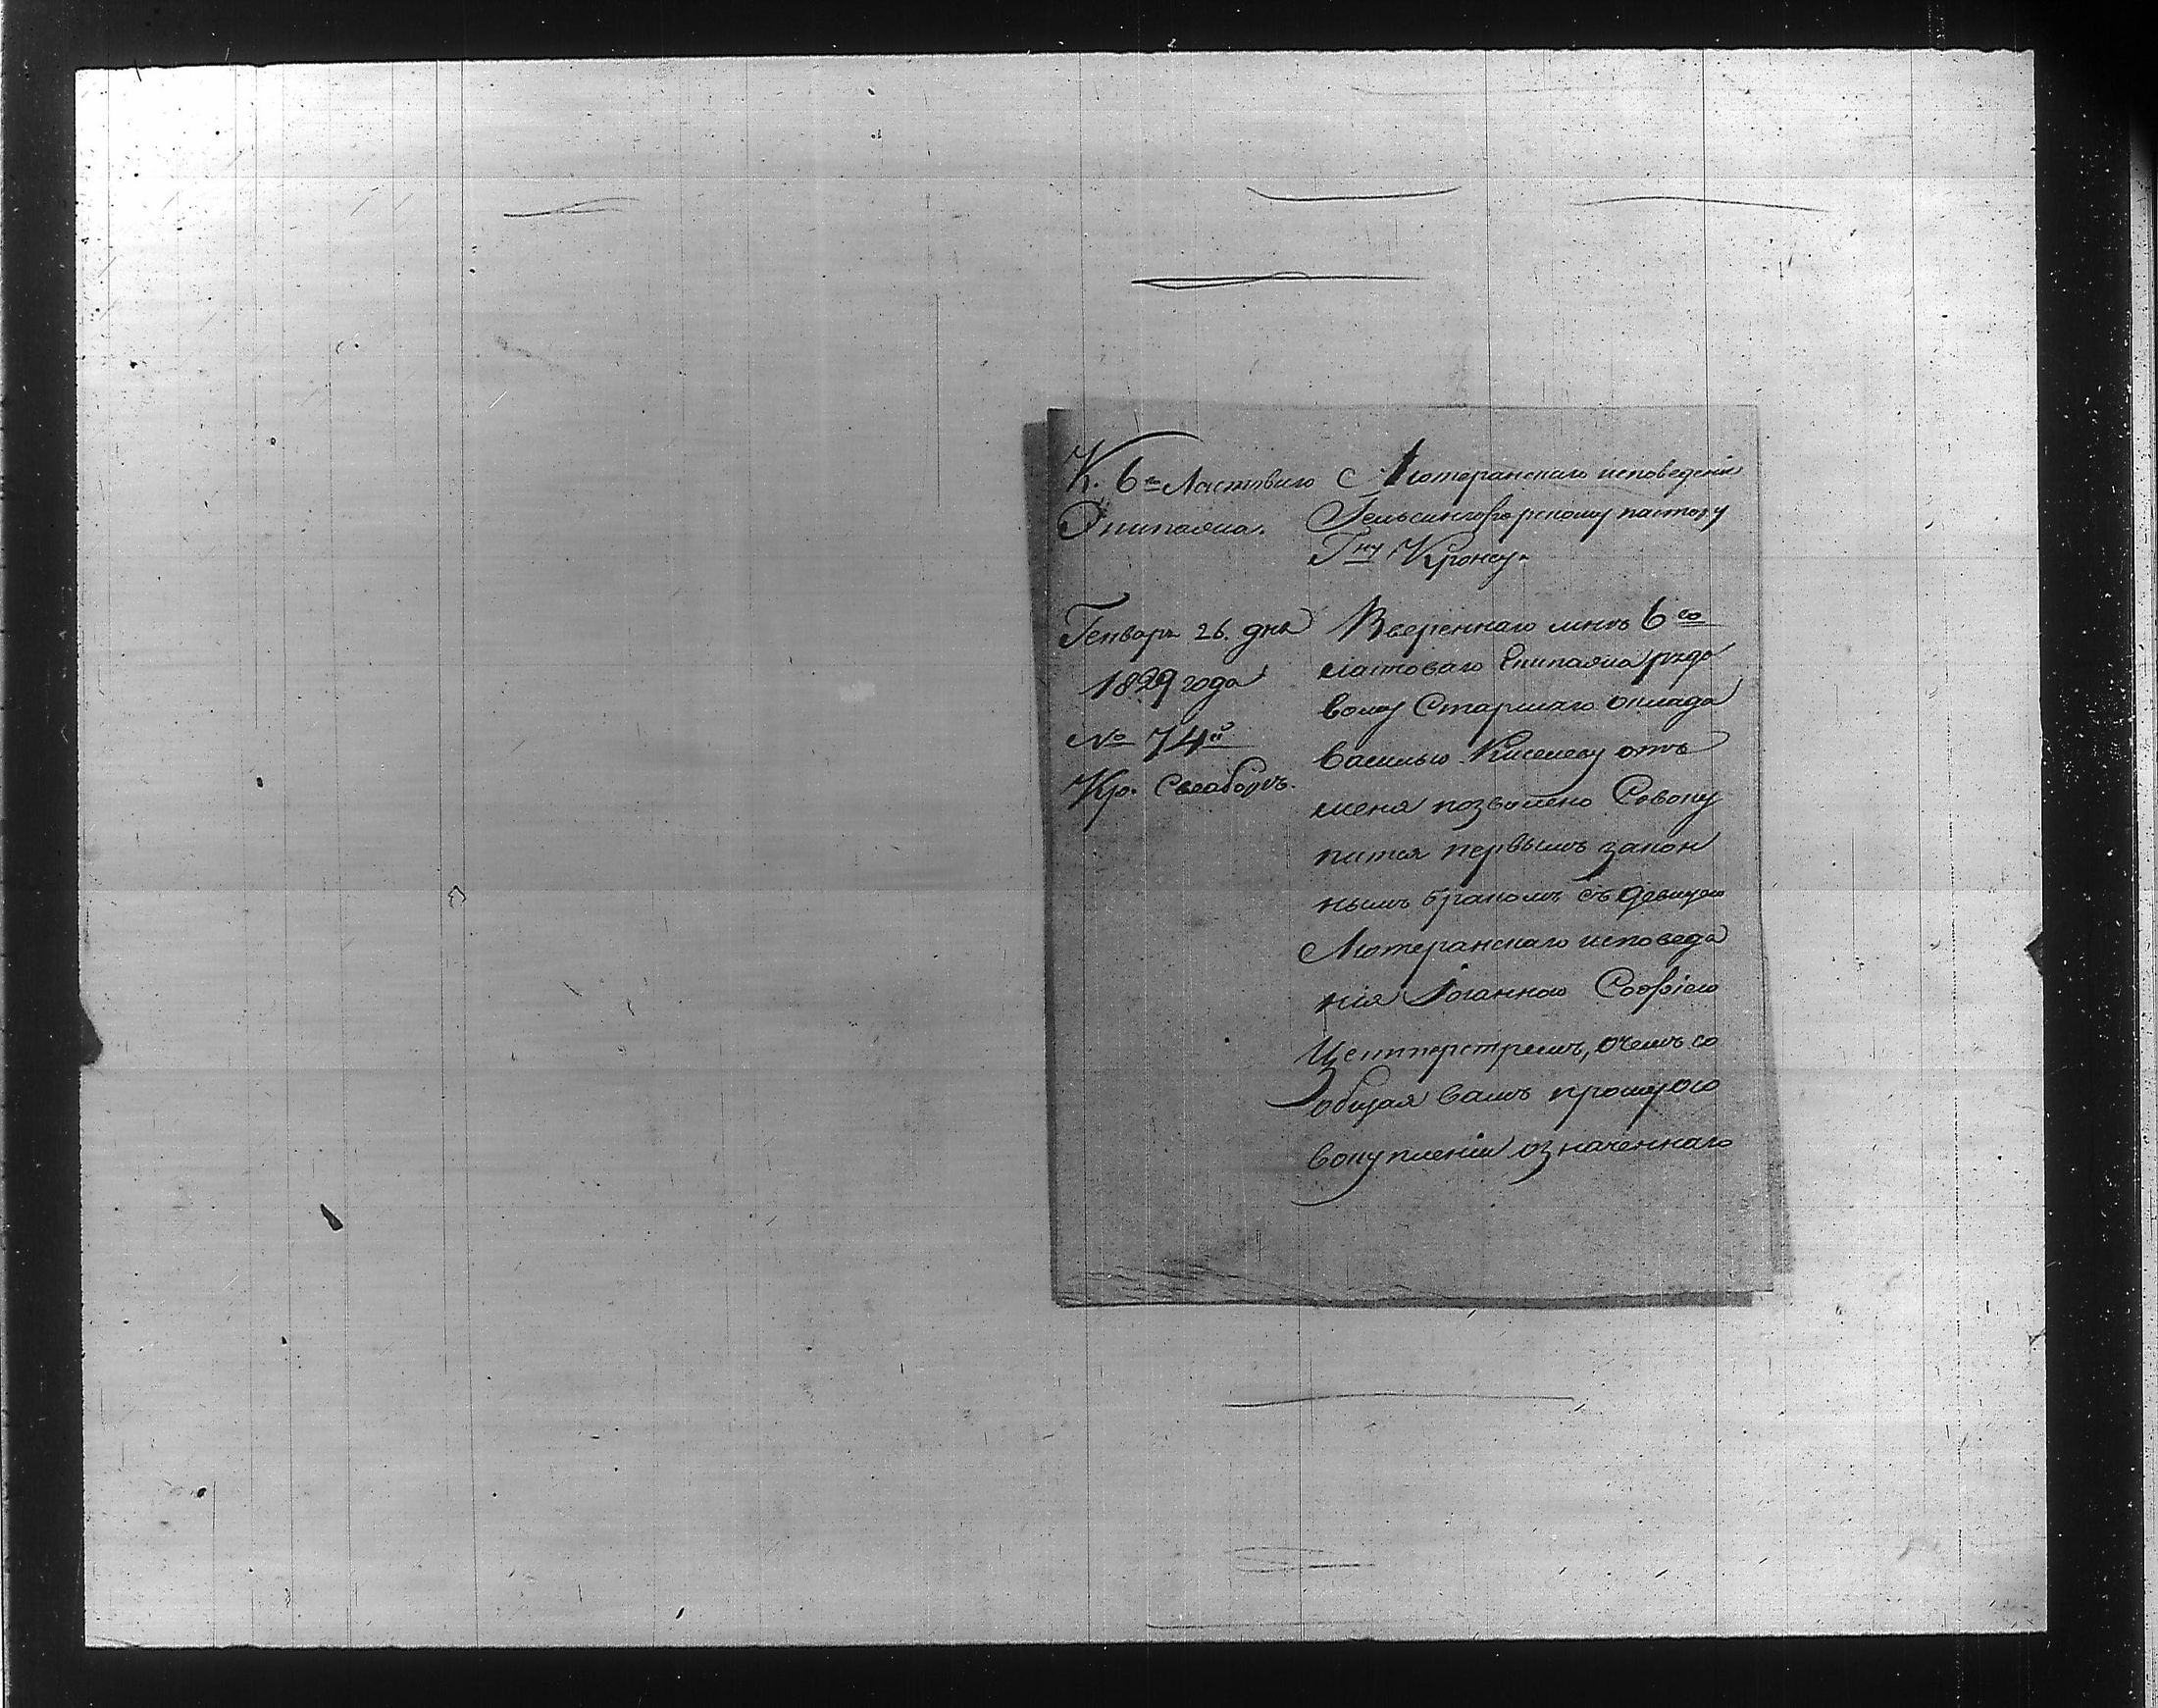 К. 6го Ластового
Экипажа.
Генваря 26. дня
1829 года
№ 74й
Кр. Свеаборгъ.
Лютеранскаго исповеденія
Гельсингфорскому пастору
Гну Крону.
Ввереннаго мнѣ 6го
ластоваго Экипажа рядо
вому Старшаго оклада
василью Киселеву отъ
меня позволено Совоку
питься первымъ закон
нымъ бракомъ съ девицею
Лютеранскаго исповеда
нія Іоганною Софіею
очемъ со
общая вамъ прошу осо
вокупленіи означеннаго